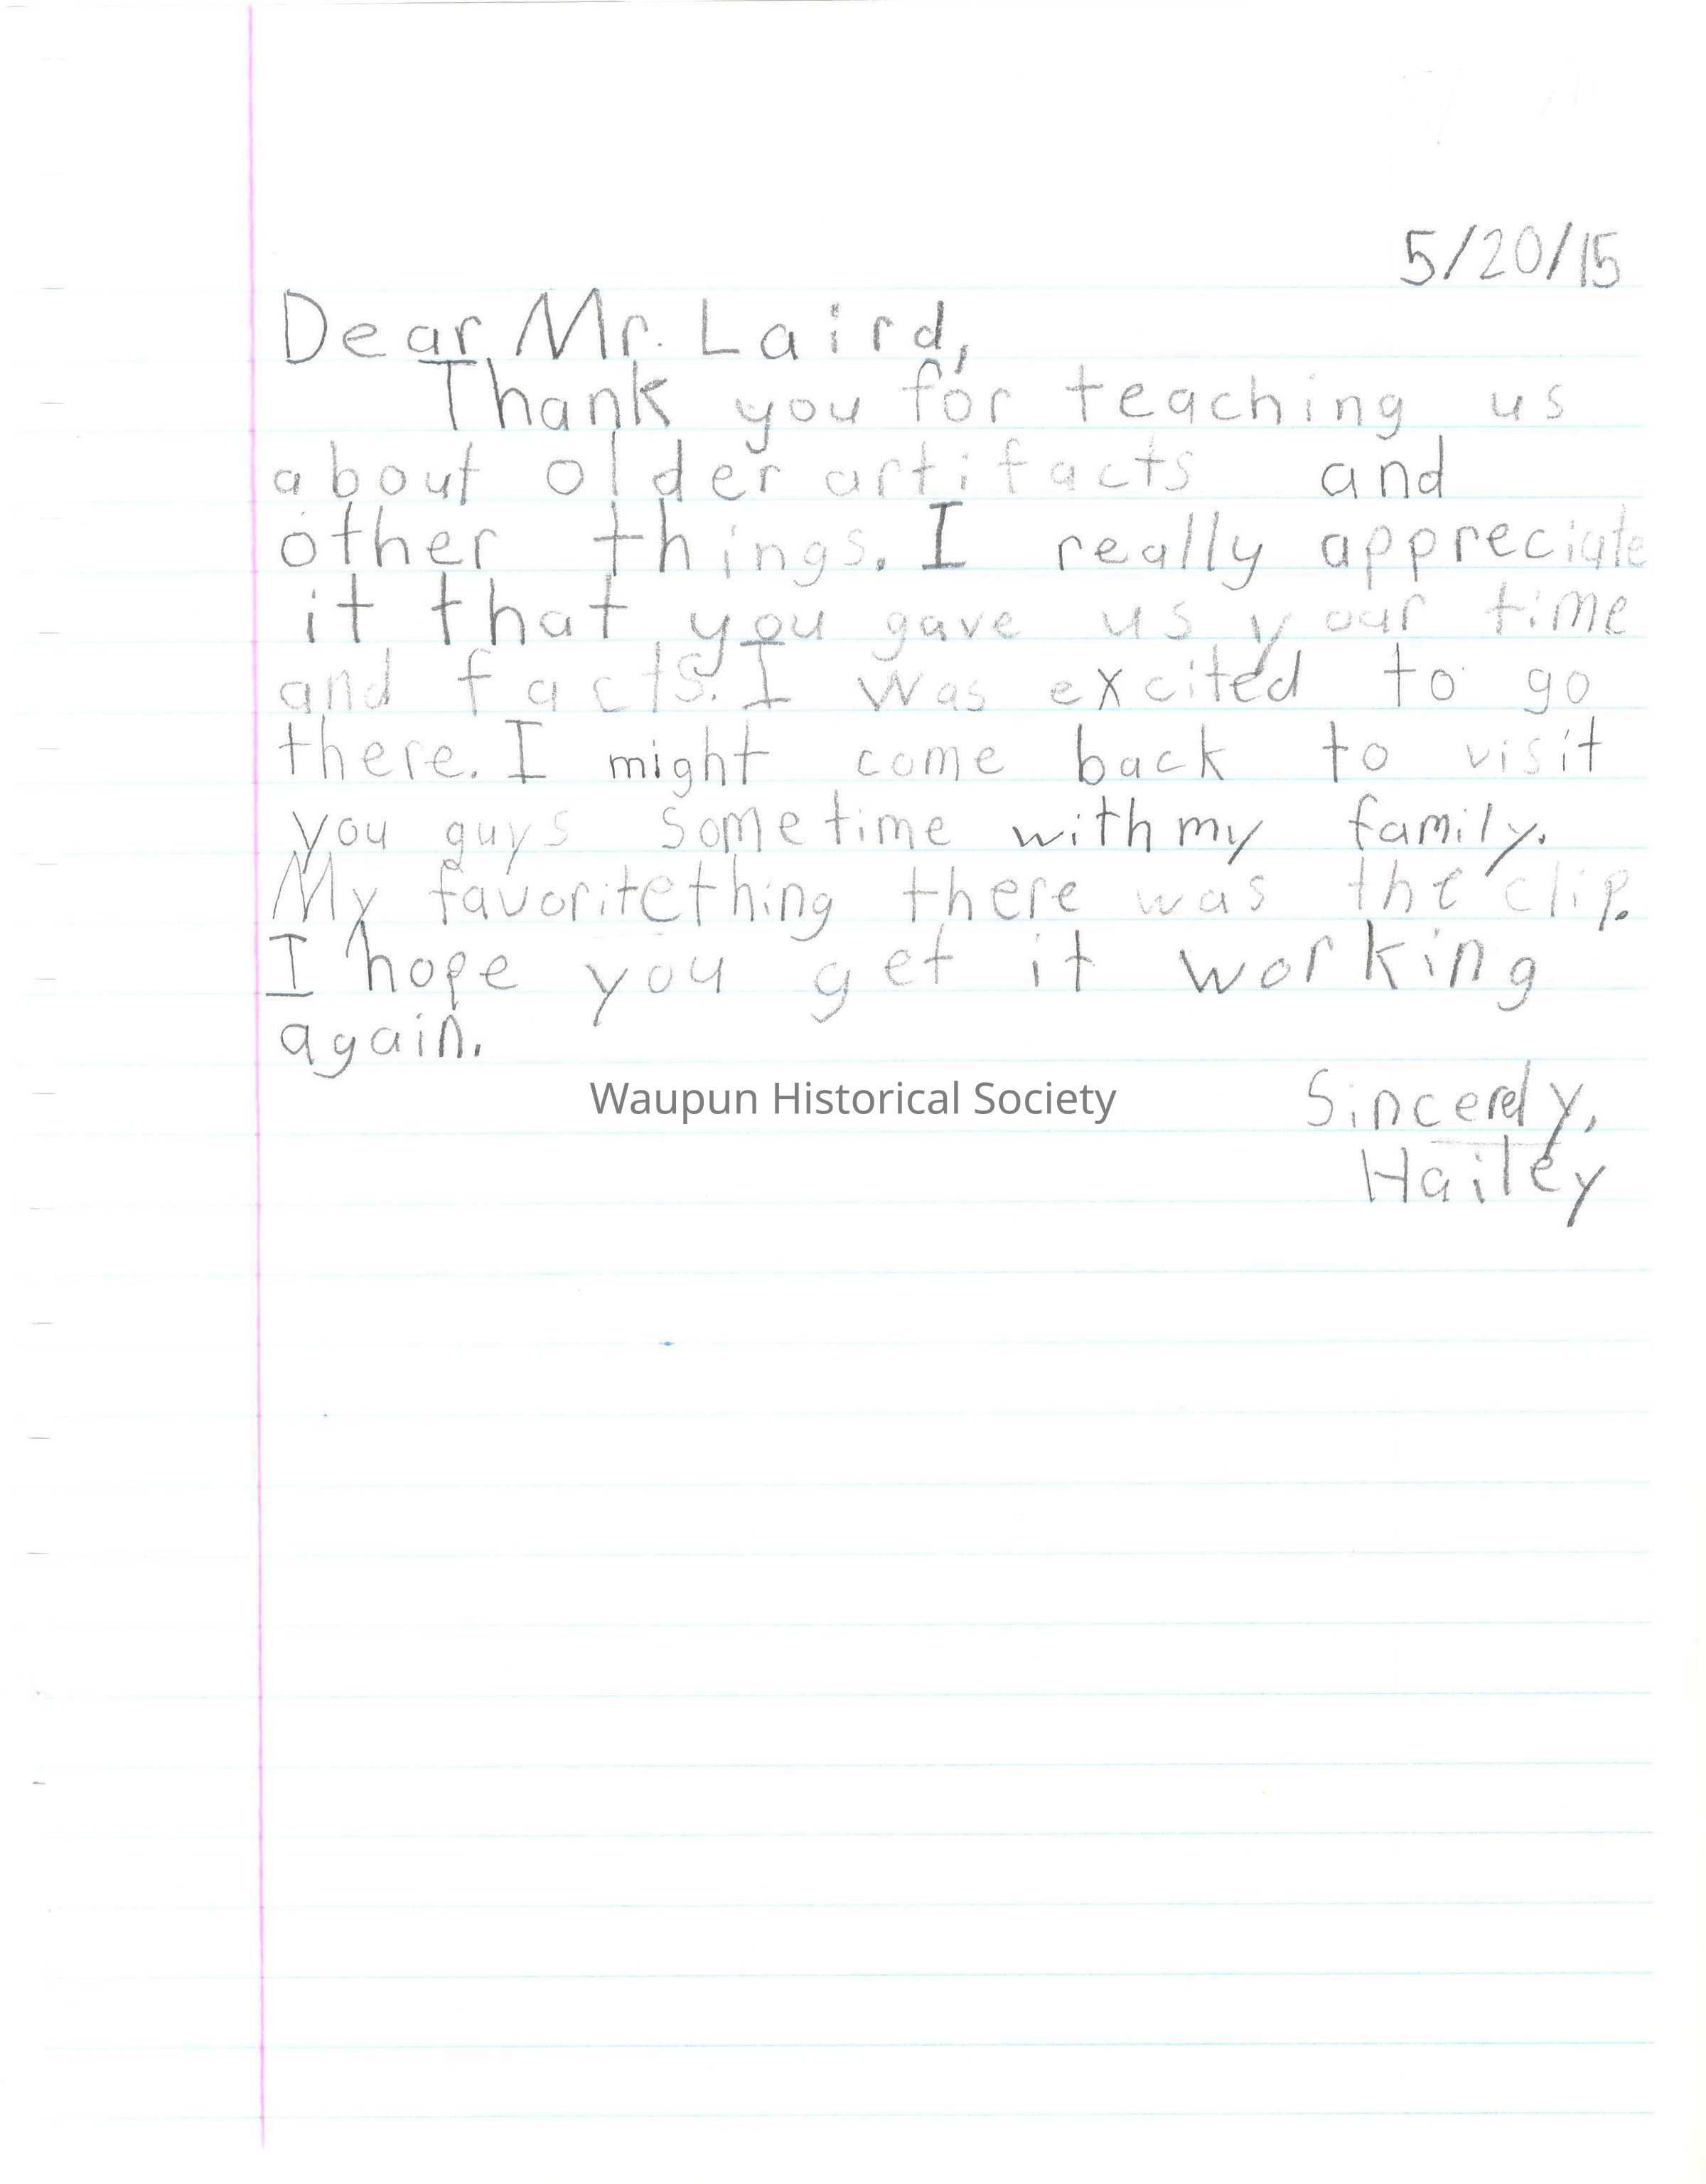 5/20/15
Dear Mr. Laird,
Thank you for teaching us
about older artifacts and
other things. I really appreciate
it that you gave us your time
and facts. I was excited to go
there. I might come back to visit
you guys sometime with my family.
My favorite thing there was the clip.
I hope you get it working
again.
Waupun Historical Society
Sincerely,
Hailey